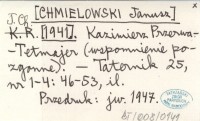 J. Ch. [CHMIELOWSKI Janusz]
K. R. [1941]. Kazimierz Przerwa-
-Tetmajer (wspomnienie po-
zgonne). — Taternik 25,
nr 1-4: 46-53, il.
Przedruk: jw. 1947.